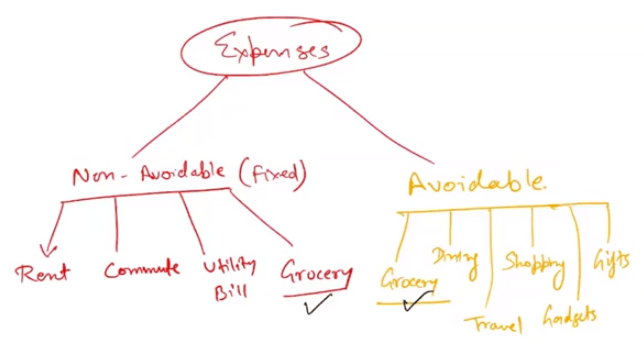 Expenses
Non-Avoidable (Fixed)
Avoidable.
Rent
Commute
Utility
Bill
Grocery
Grocery
Dining
Travel
Shopping
Gadgets
Gifts